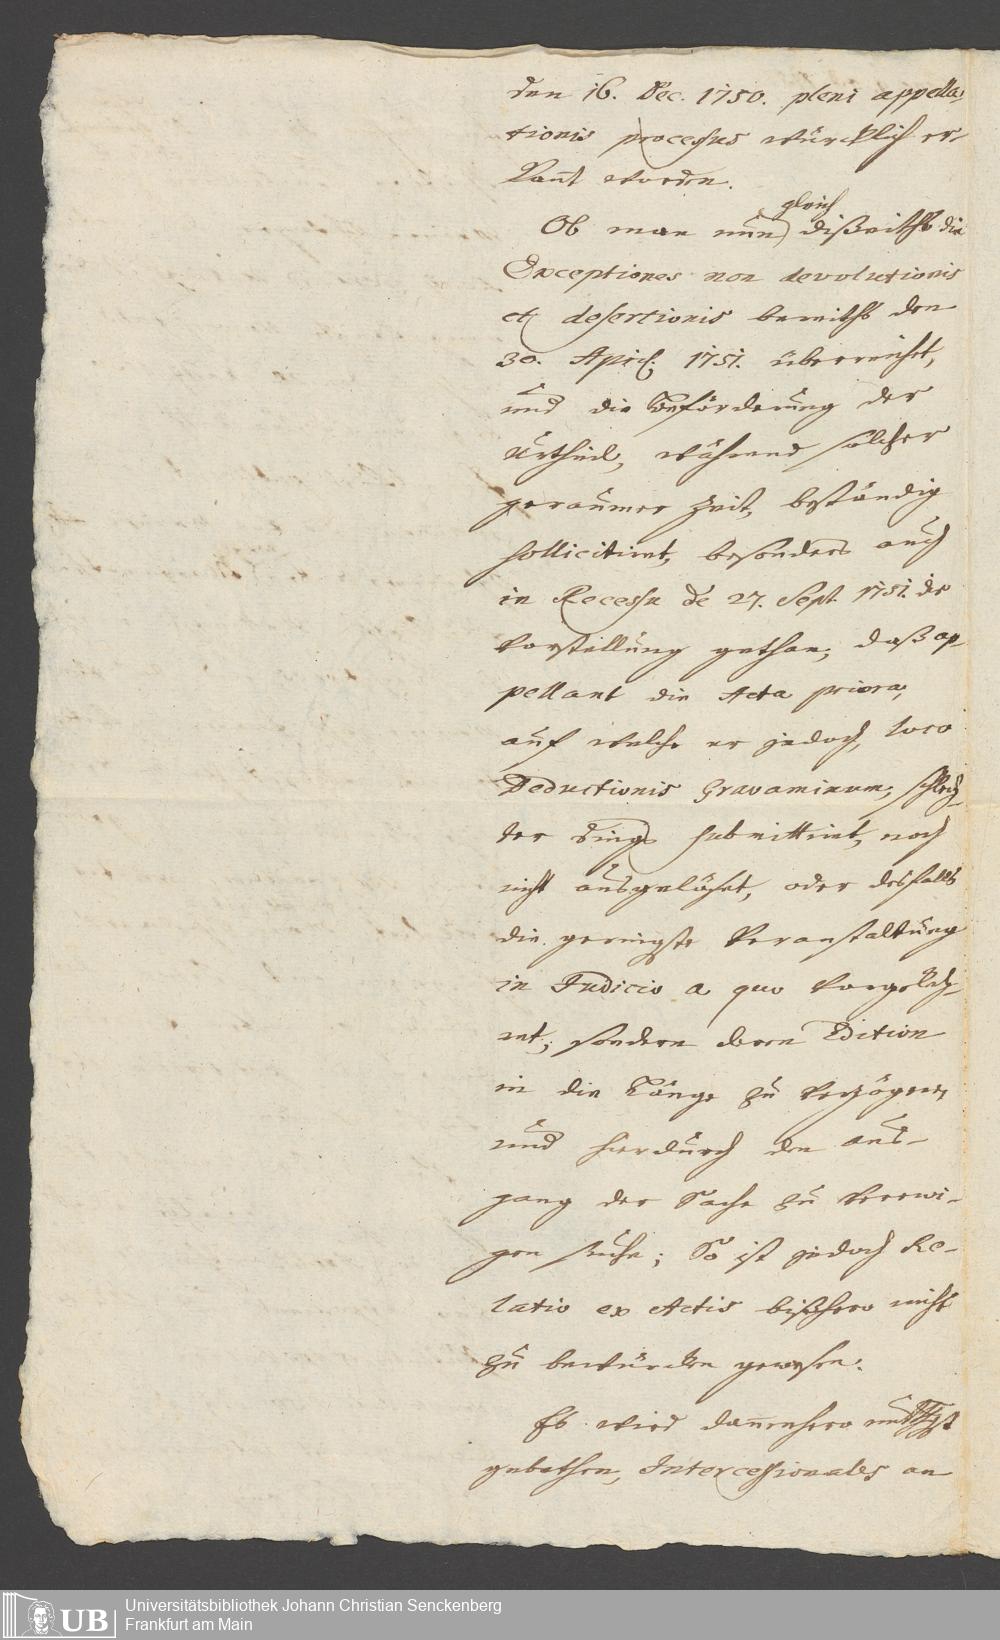 den 16. Dec. 1750. pleni appella-
tionis processus würcklich er-
kant worden.
Ob man nun gleich disseiths die
Exceptiones non devolutionis
et desertionis bereiths den
30. April. 1751. überreicht,
und die Beförderung der
Urtheil, während solcher
geraumer Zeit, beständig
sollicitiret, besonders auch
in Recessu de 27. Sept. 1751. die
Vorstellung gethan, daß ap-
pellant die Acta priora,
auf welche er jedoch, loco
Deductionis Gravaminum, schlech-
ter dings submittiret, noch
nicht ausgelößet, oder desfalls
die geringste Veranstaltung
in Judicio a quo vorgekeh-
ret; sondern deren Edition
in die Länge zu verzögern,
und hierdurch den aus-
gang der Sache zu verewi-
gen suche; So ist jedoch Re-
latio ex Actis bißhero nicht
zu bewürcken gewesen.
Es wird dannenhero
gebethen, Intercessionales an
UB Universitätsbibliothek Johann Christian Senckenberg
Frankfurt am Main